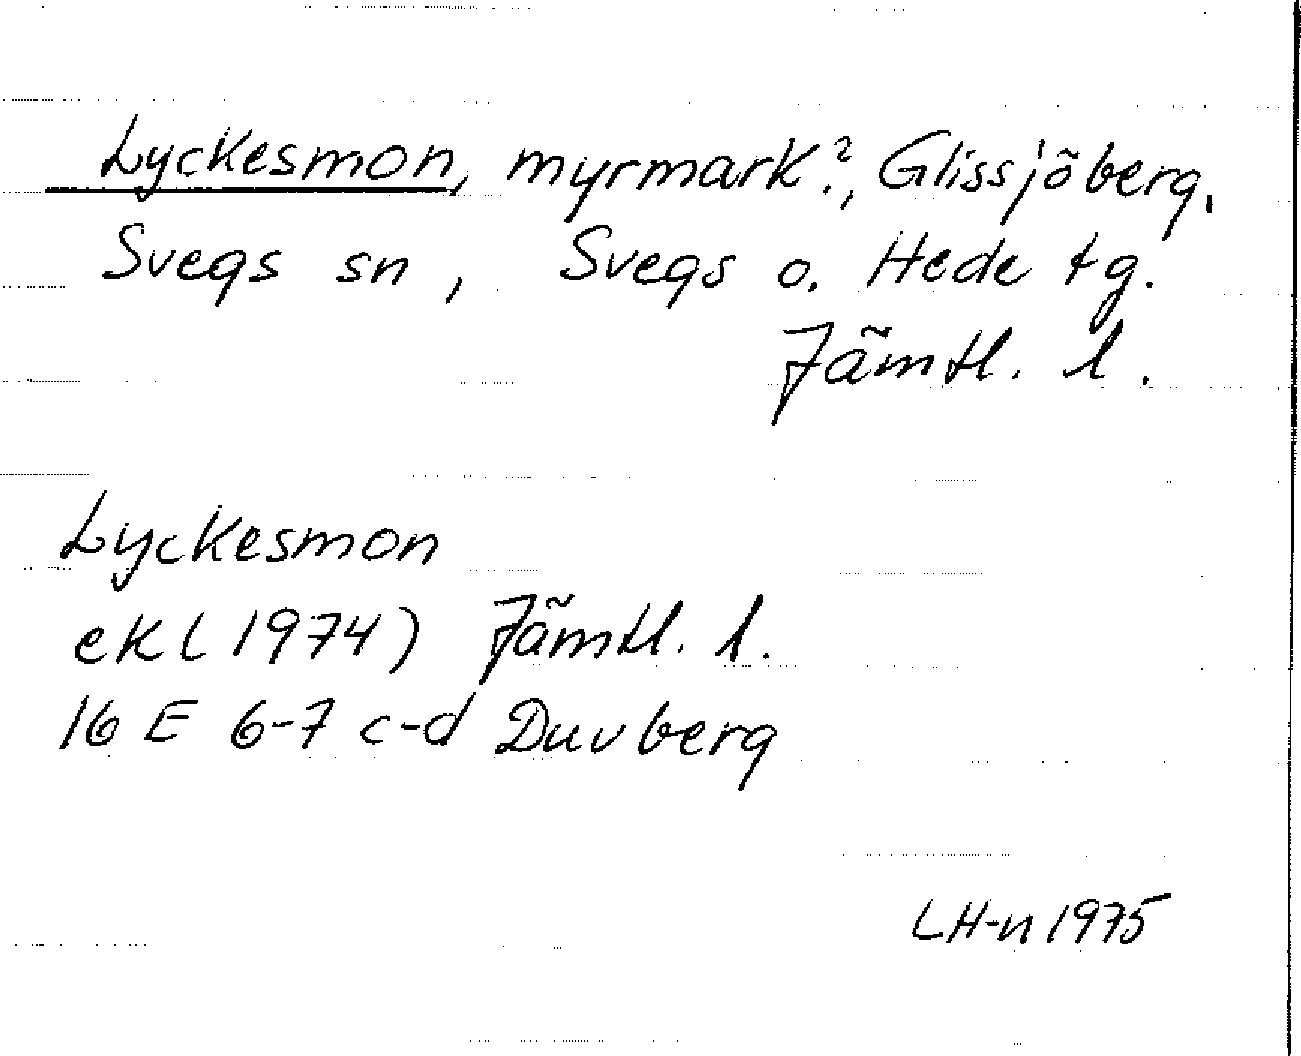 Lyckesmon, myrmark?, Glissjöberg,
Svegs sn, Svegs o. Hede tg.
Jämtl. l.
Lyckesmon
ek (1974) Jämtl. l.
16 E 6-7 c-d Duvberg
LH-n 1975